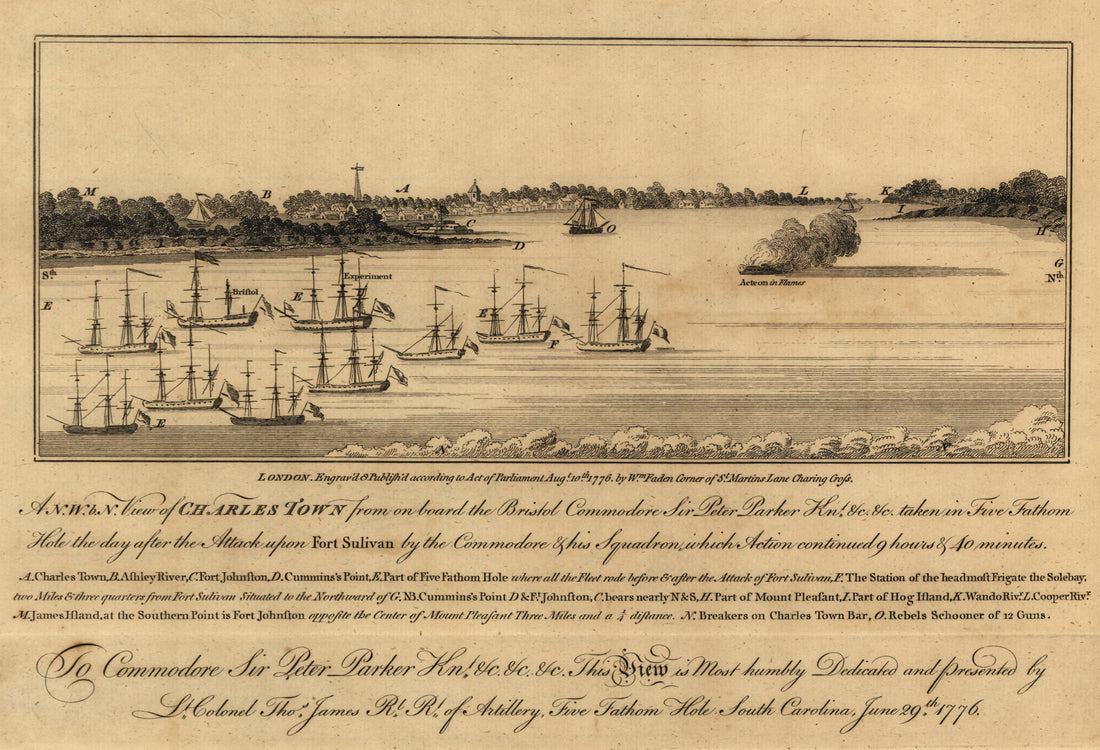 M
B
A
L
K
I
C
O
H
D
G
Sth
Nth
Experiment
Acteon in Flames
Bristol
E
E
E
F
E
N
N
LONDON. Engrav'd & Publish'd according to Act of Parliament Augt. 10th 1776. by Wm. Faden Corner of St. Martins Lane Charing Cross.
A N.W.b.N. View of CHARLES TOWN from on board the Bristol Commodore Sir Peter Parker Knt. &c. &c. taken in Five Fathom
Hole the day after the Attack upon Fort Sulivan by the Commodore & his Squadron, which Action continued 9 hours & 40 minutes.
A. Charles Town, B. Ashley River, C. Fort Johnston, D. Cummins's Point, E. Part of Five Fathom Hole where all the Fleet rode before & after the Attack of Fort Sulivan, F. The Station of the headmost Frigate the Solebay,
two Miles & three quarters from Fort Sulivan Situated to the Northward of G, NB. Cummins's Point D & Ft. Johnston, C. bears nearly N & S, H. Part of Mount Pleasant, I. Part of Hog Island, K. Wando Rivr. L. Cooper Rivr.
M. James Island, at the Southern Point is Fort Johnston opposite the Center of Mount Pleasant Three Miles and a ¼ distance. N. Breakers on Charles Town Bar, O. Rebels Schooner of 12 Guns.
To Commodore Sir Peter Parker Knt. &c. &c. &c. This View is Most humbly Dedicated and presented by
Lt. Colonel Thos. James Rl. Rt. of Artillery, Five Fathom Hole South Carolina, June 29th. 1776.